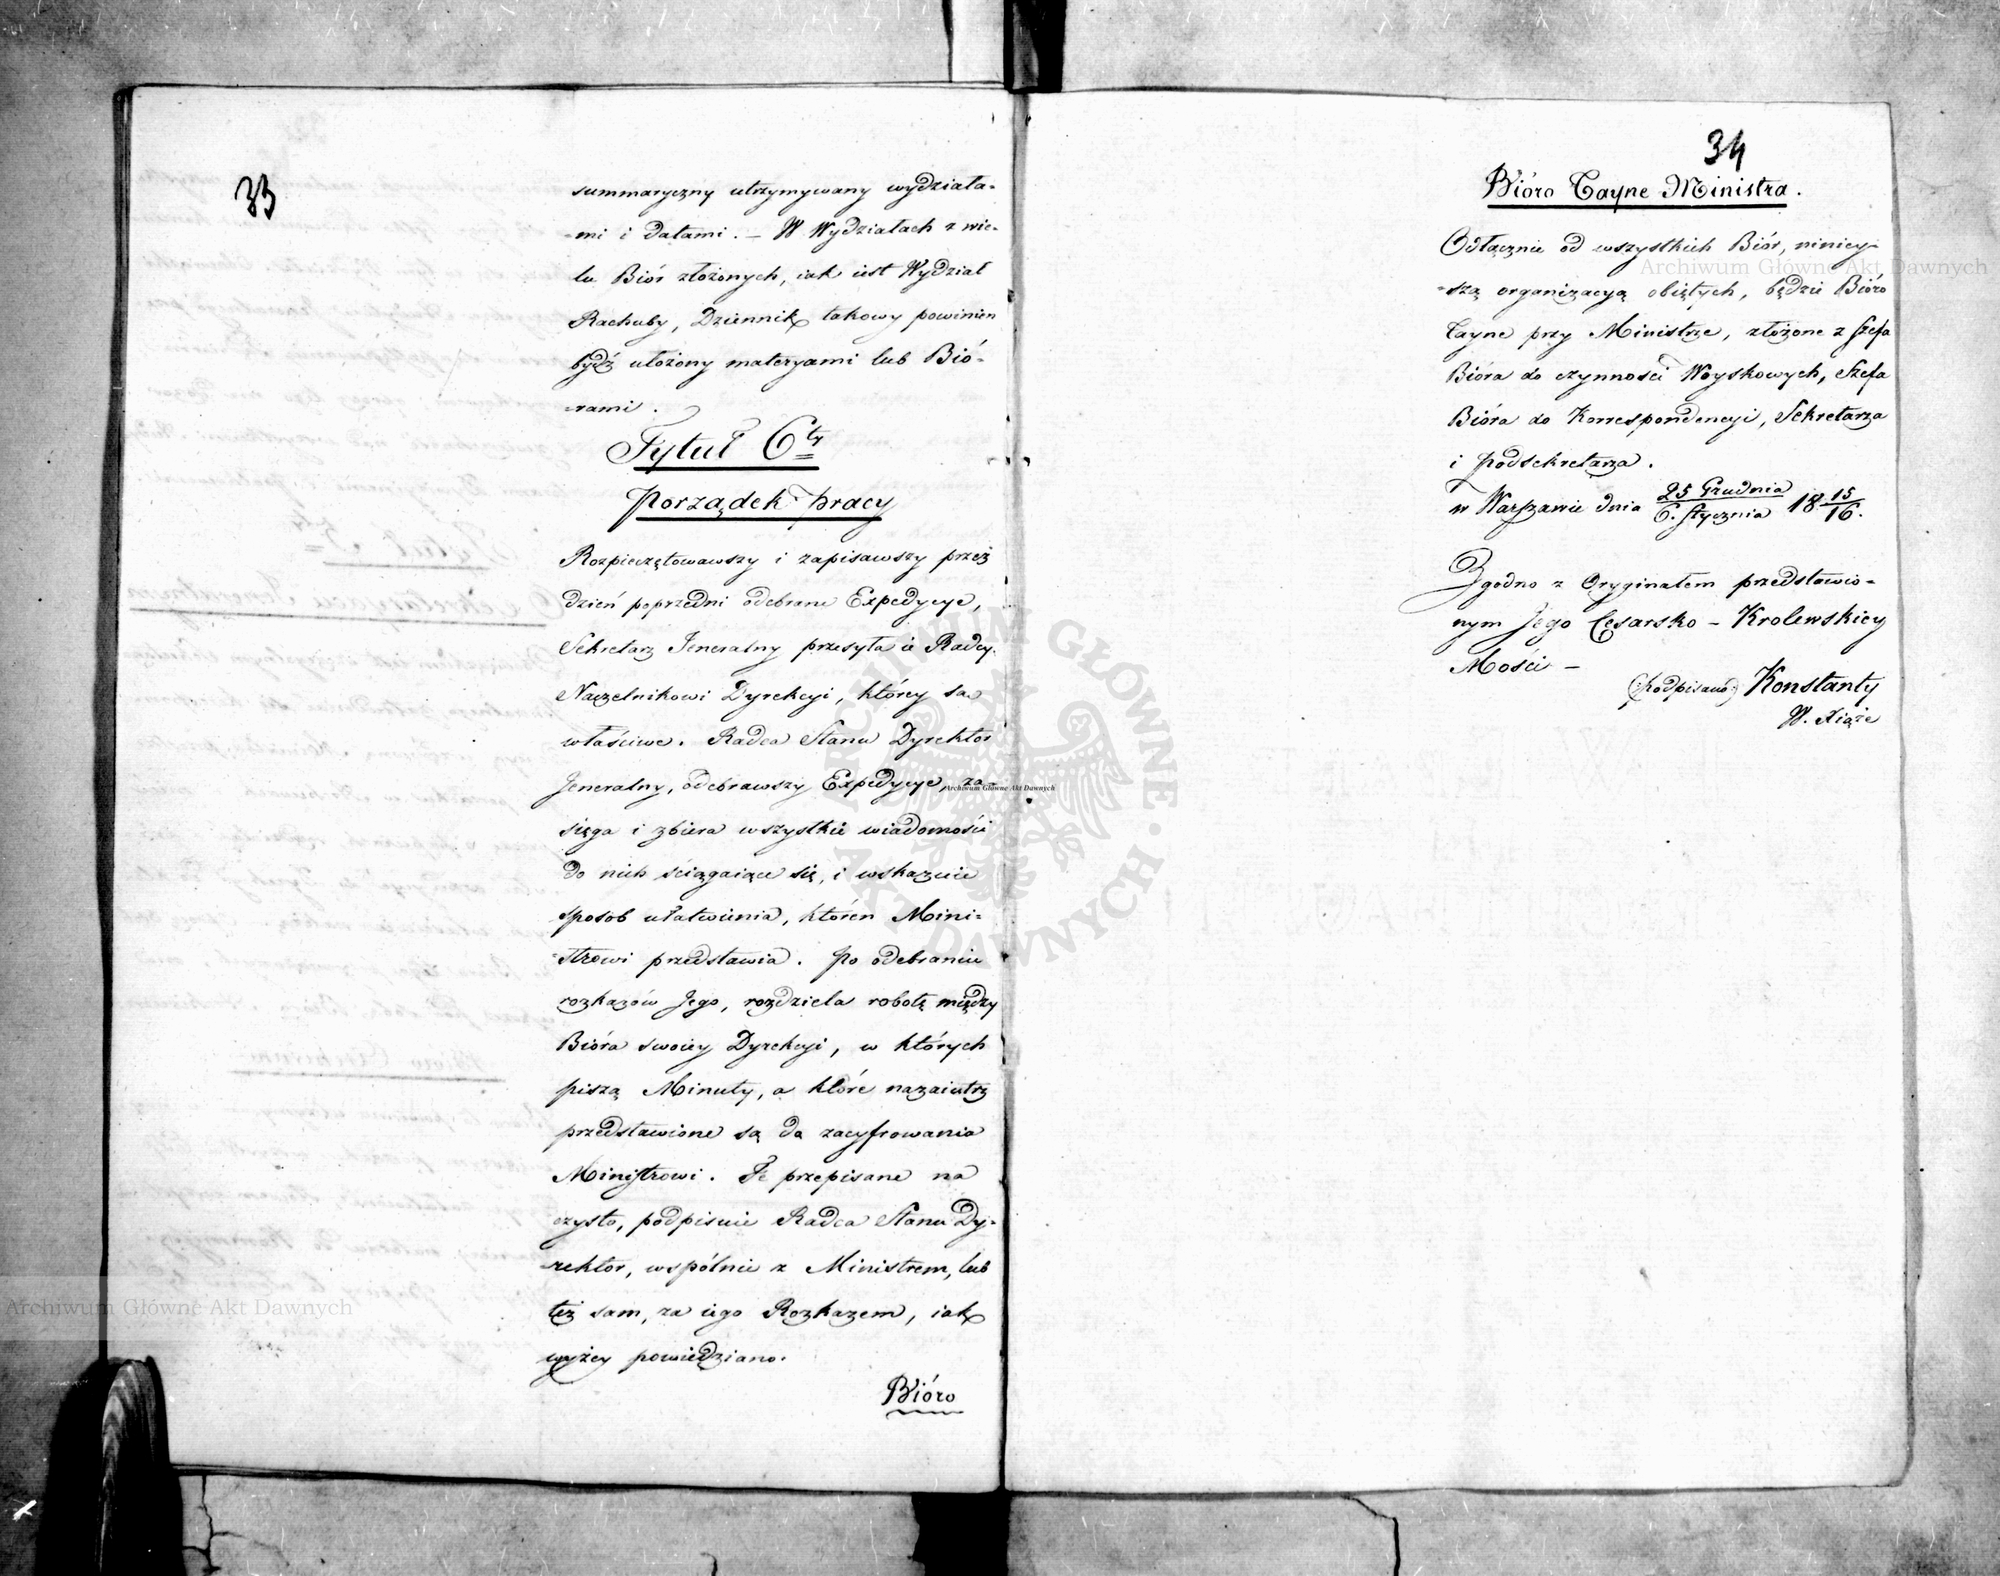 33
summaryczny utrzymywany wydziała-
-mi i datami. – W Wydziałach z wie-
lu Biór złożonych, iak iest Wydział
Rachuby, Dziennik takowy powinien
bydź ułożony materyami lub Bió-
-rami.
Tytuł 6ty
Porządek pracy
Rozpieczętowawszy i zapisawszy przez
dzień poprzedni odebrane Expedycye,
Sekretarz Jeneralny przesyła ie Radcy
Naczelnikowi Dyrekcyi, którey są
właściwe. Radca Stanu Dyrektor
Jeneralny, odebrawszy Expedycye, za-
sięga i zbiera wszystkie wiadomości
do nich ściągaiące się, i wskazuie
sposob ułatwienia, któren Mini-
-strowi przedstawia. Po odebraniu
rozkazów Jego, rozdziela robotę między
Bióra swoiey Dyrekcyi, w których
piszą Minuty, a które nazaiutrz
przedstawione są do zacyfrowania
Ministrowi. Te przepisane na
czysto, podpisuie Radca Stanu Dy-
-rektor, wspólnie z Ministrem, lub
też sam, za iego Rozkazem, iak
wyżey powiedziano.
Bióro
34
Bióro Tayne Ministra.
Odłącznie od wszystkich Biór, niniey-
-szą organizacyą obiętych, będzie Bióro
Tayne przy Ministrze, złożone z Szefa
Bióra do czynności Woyskowych, Szefa
Bióra do Korrespondencyi, Sekretarza
i Podsekretarza.
w Warszawie dnia 25 Grudnia / 6. Stycznia 18 15/16.
Zgodno z Oryginałem przedstawio-
nym Jego Cesarsko – Krolewskiey
Mości –
(:podpisano:) Konstanty
W. Xiąże
Archiwum Główne Akt Dawnych
Archiwum Główne Akt Dawnych
Archiwum Główne Akt Dawnych
ARCHIWUM GŁÓWNE AKT DAWNYCH